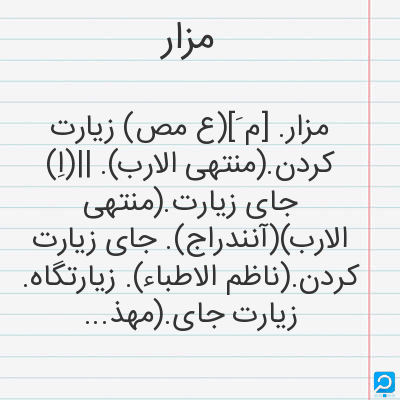 مزار
مزار. [م َ](ع مص) زیارت
کردن.(منتهی الارب). ||(اِ)
جای زیارت.(منتهی
الارب)(آنندراج). جای زیارت
کردن.(ناظم الاطباء). زیارتگاه.
زیارت جای.(مهذ...